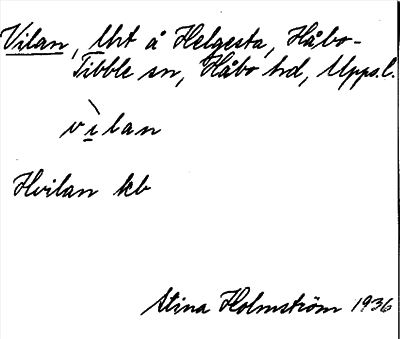 Vilan, Urt å Helgesta, Håbo-
Tibble sn, Håbo hd, Upps.l.
vìlan
Hvilan kb
Stina Holmström 1936